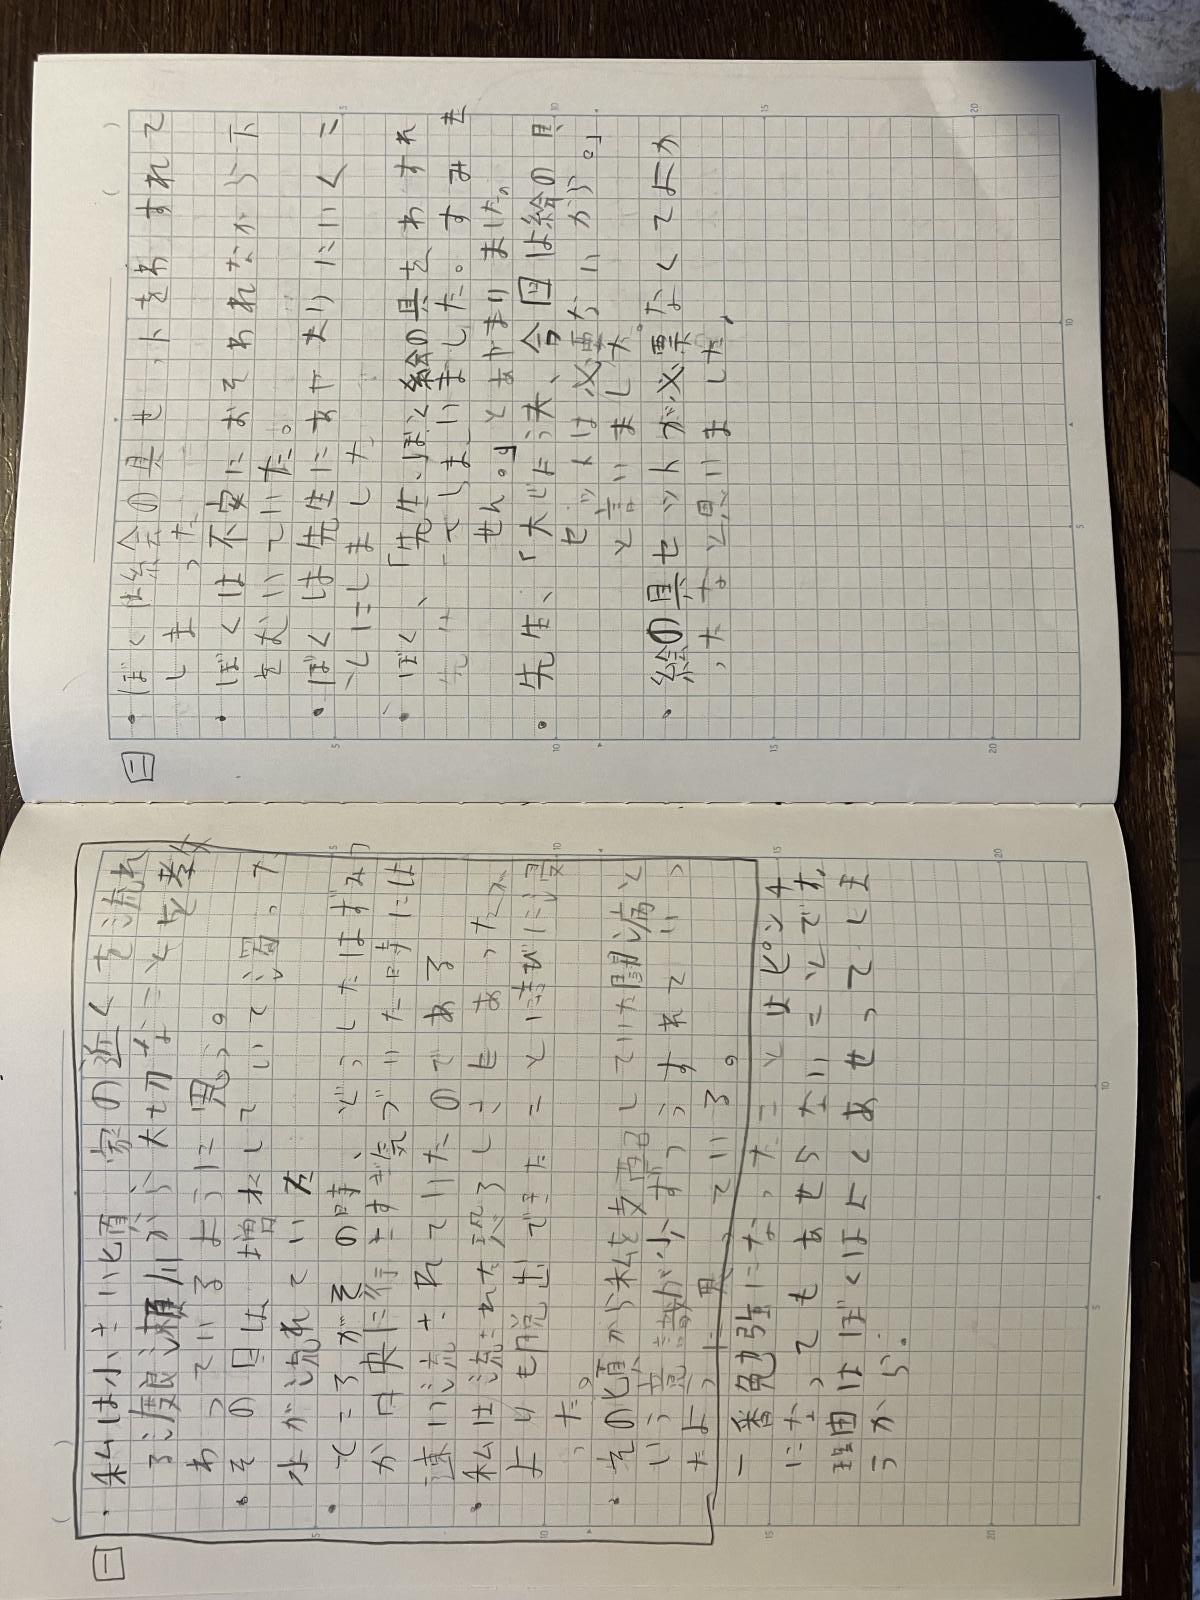 一
・私は小さい頃、家の近くを流れ
る渡良瀬川から大切なことを教
わっているように思う。
・その日は増水していて濁った
水が流れていた
・ところがその時、どうしたはずみ
か中央に行きすぎ気づいた時には
速い流されていたのである
・私は流された恐ろしさもあったが
よりも脱出できたこと
った。
・その頃から私を支配していた闘病と
いう意識が少しずつうすれていっ
たように思っている。
一番勉強になったことはピンチ
になってもあせらないことです。
理由はぼくはよくあせってしま
うから。
二
・ぼくは絵の具セットをわすれて
しまった
・ぼくは不安におそわれながら下
をむいていた。
・ぼくは先生にあやまりにいくこ
とにしました
・ぼく、「先生、ぼく絵の具をわすれ
てしまいました。すみま
せん。」とあやまりました。
・先生、「大じょ夫、今日は絵の具
セットは必要ないから。」
と言いました。
・絵の具セットが必要なくてよか
ったなと思いました。